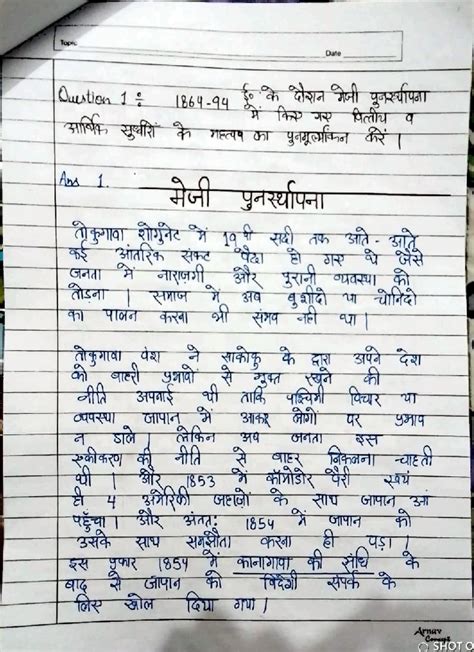 Topic
Date
Question 1 ÷ 1864-94 ई० के दौरान मेजी पुनर्स्थापना
में किए गए वित्तीय व
आर्थिक सुधारों के महत्त्व का पुनर्मूल्यांकन करें।
Ans 1.
मेजी पुनर्स्थापना
तोकुगावा शोगुनेट में 19वी सदी तक आते-आते
कई आंतरिक संकट पैदा हो गए थे जैसे
जनता में नाराजगी और पुरानी व्यवस्था को
तोडना। समाज में अब बुशीदो या चोनिदो
का पालन करना भी संभव नही था।
तोकुगावा वंश ने साकोकु के द्वारा अपने देश
को बाहरी प्रभावों से मुक्त रखने की
नीति अपनाई थी ताकि पश्चिमी विचार या
व्यवस्था जापान में आकर लोगों पर प्रभाव
न डाले। लेकिन अब जनता इस
एकीकरण की नीति से बाहर निकलना चाहती
थी। और 1853 में कॉमोडोर पैरी स्वयं
ही 4 अमेरिकी जहाजों के साथ जापान आ
पहुँचा। और अंततः 1854 में जापान को
उसके साथ समझौता करना ही पड़ा।
इस प्रकार 1854 में कानागावा की संधि के
बाद से जापान को विदेशी संपर्क के
लिए खोल दिया गया।
Arnav
SHOT O